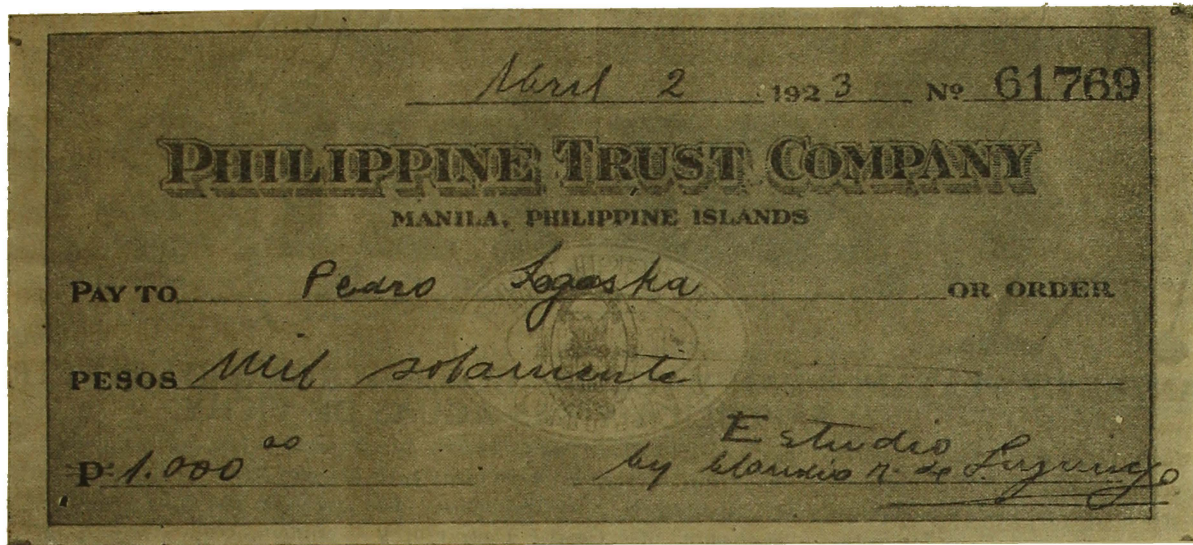 Abril 2 1923 Nº 61769
PHILIPPINE TRUST COMPANY
MANILA, PHILIPPINE ISLANDS
PAY TO Pedro OR ORDER
PESOS Mil solamente
P 1.000 00
Estudio
by Claudio R. de Luzuriaga